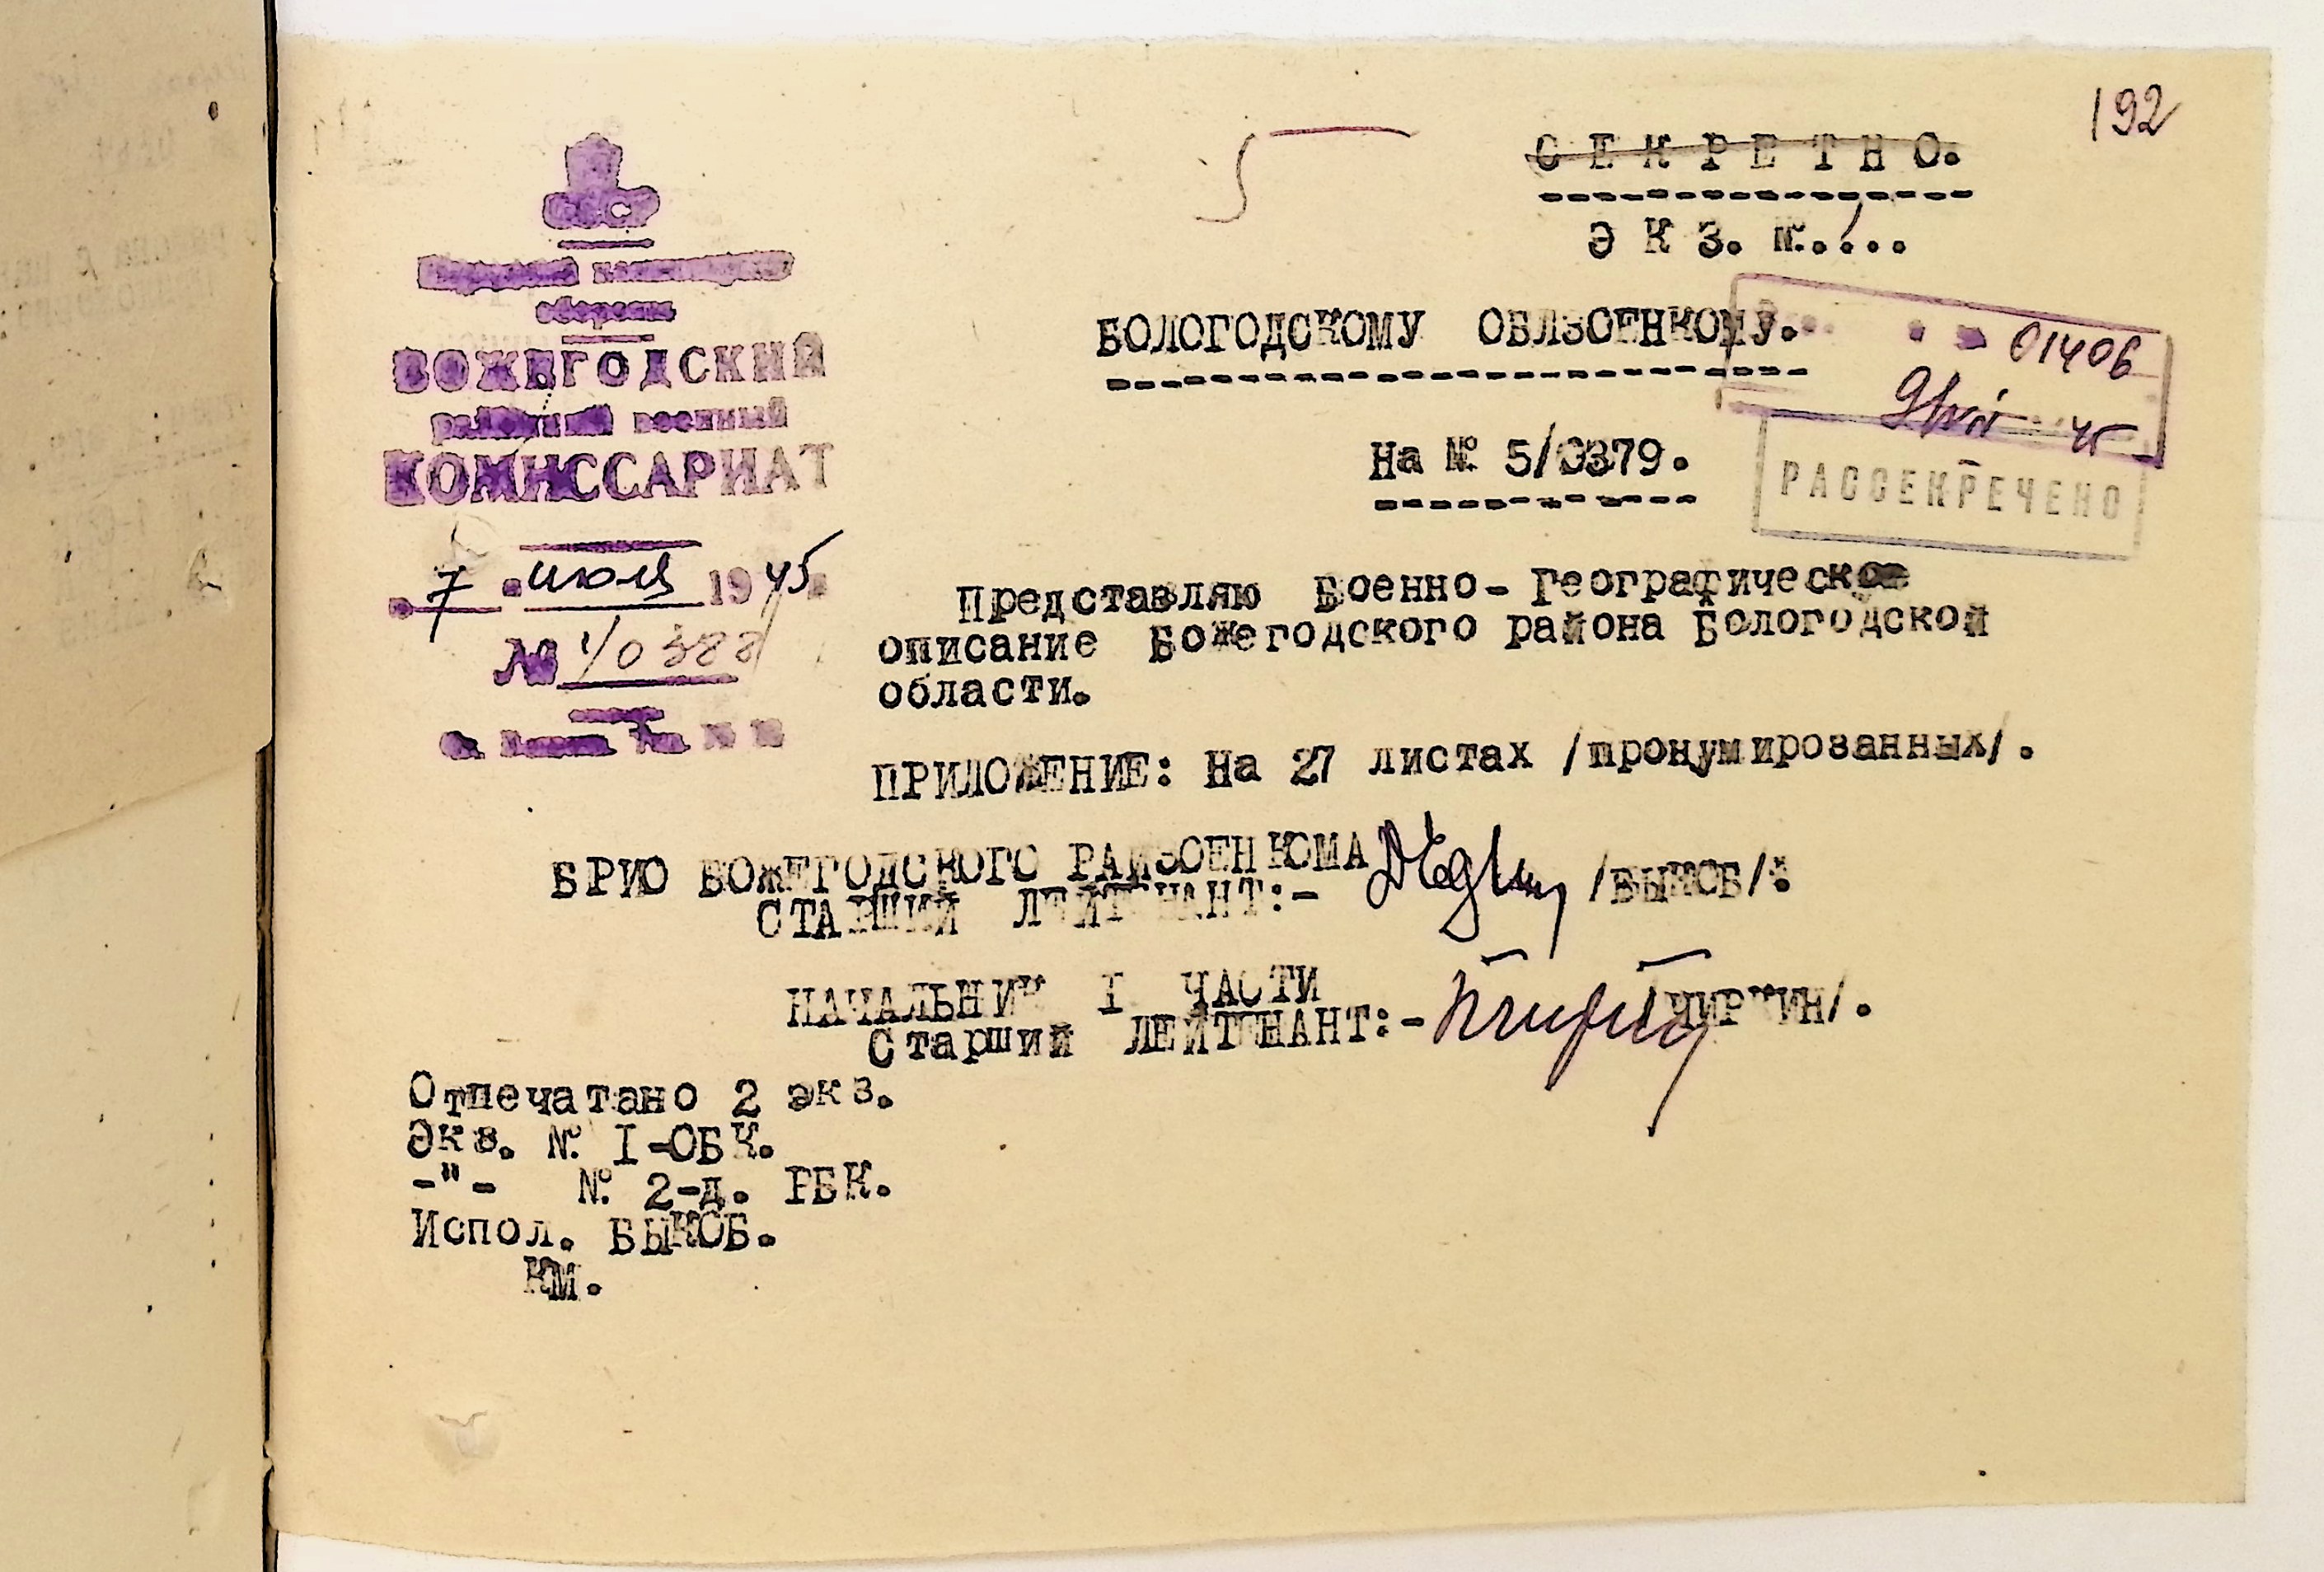 192
СЕКРЕТНО.
ЭКЗ. №.1...
СССР
Народный комиссариат
обороны
ВОЖЕГОДСКИЙ
районный военный
КОМИССАРИАТ
7 июля 1945
№ 1/0388
ВОЛОГОДСКОМУ ОБЛВОЕНКОМУ.
01406
45
На № 5/0379.
РАССЕКРЕЧЕНО
Представляю Военно-Географическое
описание Вожегодского района Вологодской
области.
ПРИЛОЖЕНИЕ: На 27 листах /пронумированных/.
ВРИО ВОЖЕГОДСКОГО РАЙВОЕНКОМА
СТАРШИЙ ЛЕЙТЕНАНТ:- /БЫКОВ/:
НАЧАЛЬНИК I ЧАСТИ
Старший ЛЕЙТЕНАНТ:- /ЧИРКИН/.
Отпечатано 2 экз.
Экз. № I-ОВК.
-"- № 2-д. РВК.
Испол. БЫКОВ.
КМ.